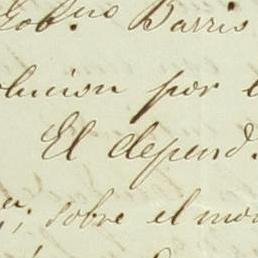 Gob.^no Barris
olucion por e
El depend.
^a; sobre el mo